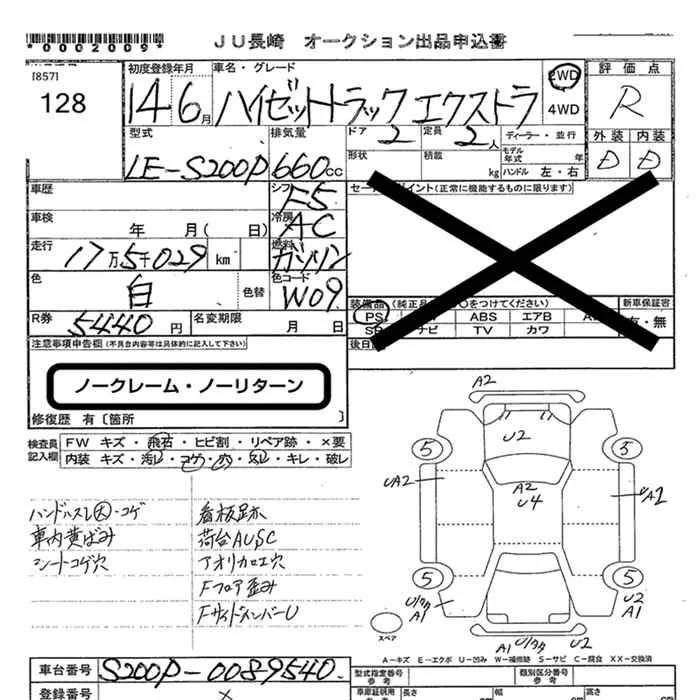 *0002009*
JU長崎 オークション出品申込書
[857]
128
初度登録年月 車名・グレード
14 6月 ハイゼットトラック エクストラ
2WD
4WD
評価点
R
外装 内装
D D
型式 排気量 ドア 定員 ディーラー・並行
LE-S200P 660cc 2 2人
形状 積載 kg モデル年式 年
ハンドル 左・右
車歴 シフト F5
セールスポイント(正常に機能するものに限ります)
車検 年 月(日) 冷房 AC
走行 17万5千029 km 燃料 ガソリン
色 白 色替 色コード W09
装備品 (純正品 ○をつけてください) 新車保証書
PS ABS エアB 有・無
SR ナビ TV カワ
R券 5440円 名変期限 月 日
後日
注意事項申告欄(不具合内容等は具体的に記入して下さい)
ノークレーム・ノーリターン
修復歴 有〔箇所 〕
検査員記入欄
FW キズ・飛石・ヒビ割・リペア跡・×要
内装 キズ・汚レ・コゲ・穴・スレ・キレ・破レ
ハンドルスレ大・コゲ
車内黄ばみ
シートコゲ穴
看板跡
荷台AUSC
アオリカロエ穴
Fフロア歪み
FサイドメンバーU
A2
U2
5 5
UA2 A2 UA2
U4
5 5
U2
A1 A1
A1 U2
スペア
A-キズ E-エクボ U-凹み W-補修跡 S-サビ C-腐食 XX-交換済
車台番号 S200P-0089540.
登録番号 ×
型式指定番号 参考 類別区分番号 参考
車庫証明用 長さ 幅 高さ